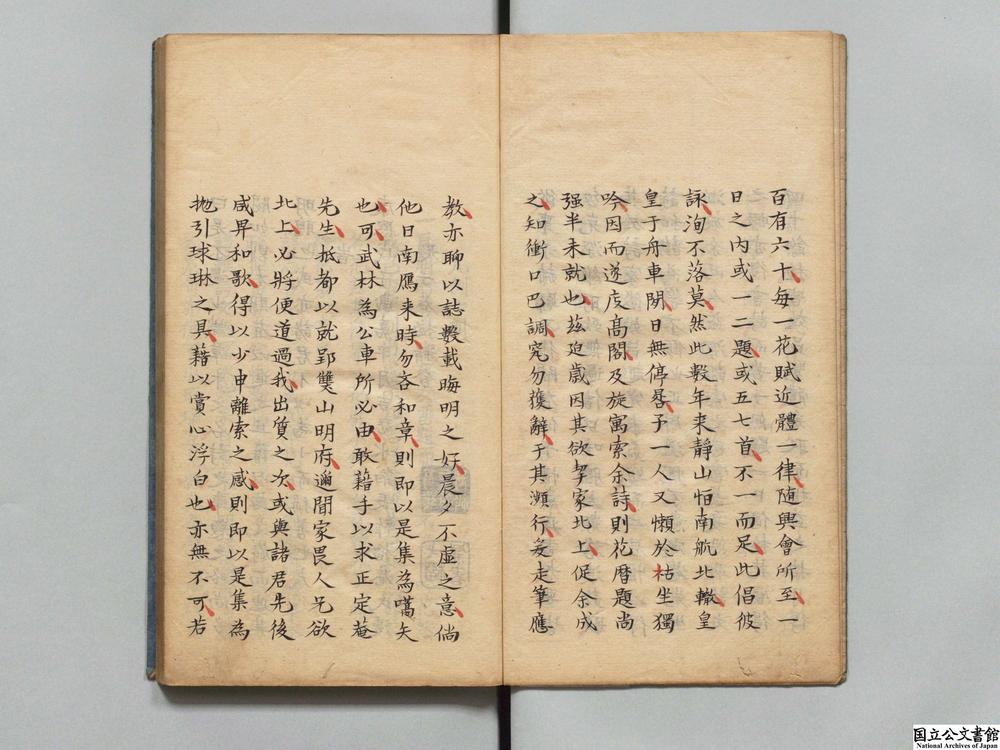 百有六十每一花賦近體一律随興會所至一
日之内或一二題或五七首不一而足此倡彼
詠洵不落莫然此數年来靜山怕南航北轍皇
皇于舟車閒日無停晷予一人又懶於枯坐獨
吟因而遂庋髙閣及旋寓索余詩則花暦題尚
强半未就也茲迫歳因其欲挈家北上促余成
之知衝口巴調究勿獲辭于其瀕行妄走筆應
教亦聊以誌數載晦明之好晨夕不虛之意倘
他日南鴈来時勿吝和章則即以是集為嚆矢
也可武林為公車所必由敢藉手以求正定菴
先生抵都以就郢雙山明府邇聞家畏人兄欲
北上必將便道過我出質之次或與諸君先後
咸畀和歌得以少申離索之感則即以是集為
抛引球琳之具藉以賞心浮白也亦無不可若
国立公文書館
National Archives of Japan